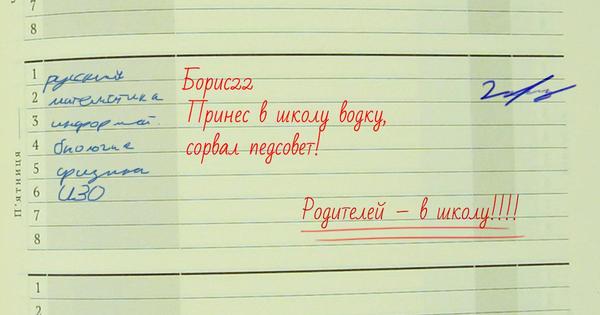 7
8
1 русский
2 математика
3 информат.
4 биология
5 физика
6 ИЗО
7
8
П'ятниця
Борис22
Принес в школу водку,
сорвал педсовет!
Родителей – в школу!!!!
1
2